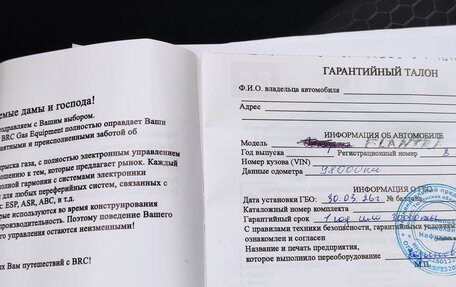 емые дамы и господа!
здравляем с Вашим выбором.
BRC Gas Equipment полностью оправдает Ваши
ятными и преисполненными заботой об
прыска газа, с полностью электронным управлением
ошению к тем, которые предлагает рынок. Каждый
олной гармонии с системами электроники
для любых периферийных систем, связанных с
с: ESP, ASR, ABC, и т.д.
рые использовались во время конструирования
роизводительность. Поэтому поведение Вашего
го управления остаются неизменными!
х Вам путешествий с BRC!
ГАРАНТИЙНЫЙ ТАЛОН
Ф.И.О. владельца автомобиля
Адрес
ИНФОРМАЦИЯ ОБ АВТОМОБИЛЕ
Модель ELANTR
Год выпуска Регистрационный номер В
Номер кузова (VIN)
Данные одометра 98000км
ИНФОРМАЦИЯ О ГБО
Дата установки ГБО: 30.03.26г № баллона
Каталожный номер комплекта
Гарантийный срок 1 год или
С правилами техники безопасности, гарантийными условиями
ознакомлен и согласен
Название и печать предприятия,
которое выполнило переоборудование
М.П.